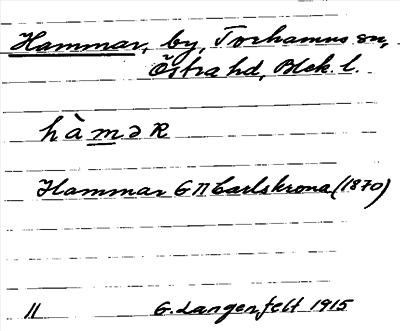 Hammar, by, Torhamns sn,
Östra hd, Blek. l.
hàməR
Hammar G II Carlskrona (1870)
II G. Langenfelt 1915